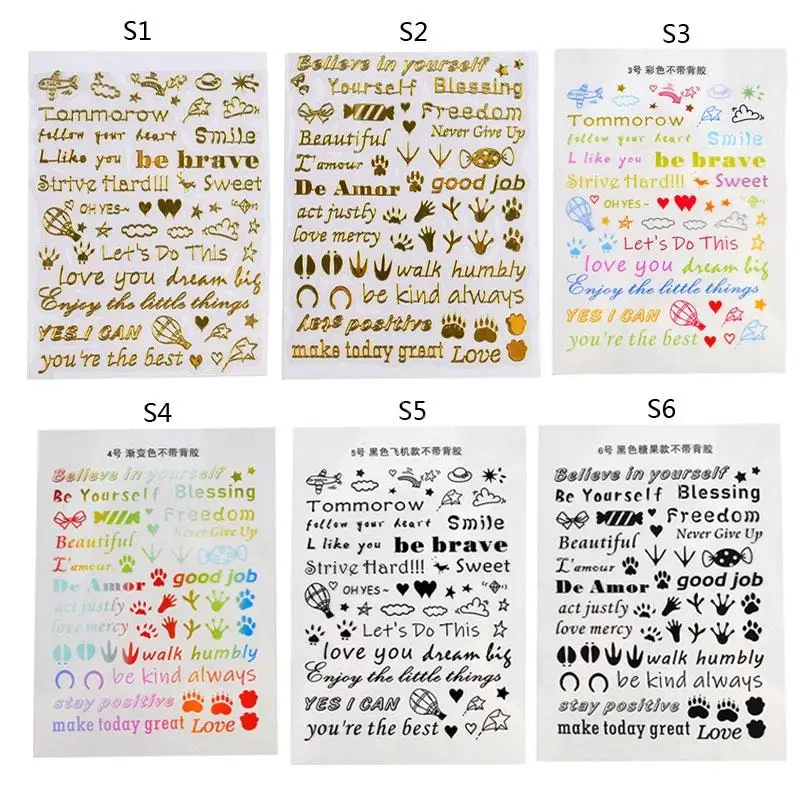 S1
Tommorow
follow your heart Smile
L like you be brave
Strive Hard!!! Sweet
OH YES~
Let's Do This
love you dream big
Enjoy the little things
YES I CAN
you're the best
S2
Believe in yourself
Yourself Blessing
Freedom
Beautiful Never Give Up
L'amour
De Amor good job
act justly
love mercy
walk humbly
be kind always
stay positive
make today great Love
S3
3号 彩色不带背胶
Tommorow
follow your heart Smile
L like you be brave
Strive Hard!!! Sweet
OH YES~
Let's Do This
love you dream big
Enjoy the little things
YES I CAN
you're the best
S4
4号 渐变色不带背胶
Believe in yourself
Be Yourself Blessing
Freedom
Beautiful Never Give Up
L'amour
De Amor good job
act justly
love mercy
walk humbly
be kind always
stay positive
make today great Love
S5
5号 黑色飞机款不带背胶
Tommorow
follow your heart Smile
L like you be brave
Strive Hard!!! Sweet
OH YES~
Let's Do This
love you dream big
Enjoy the little things
YES I CAN
you're the best
S6
6号 黑色糖果款不带背胶
Believe in yourself
Be Yourself Blessing
Freedom
Beautiful Never Give Up
L'amour
De Amor good job
act justly
love mercy
walk humbly
be kind always
stay positive
make today great Love